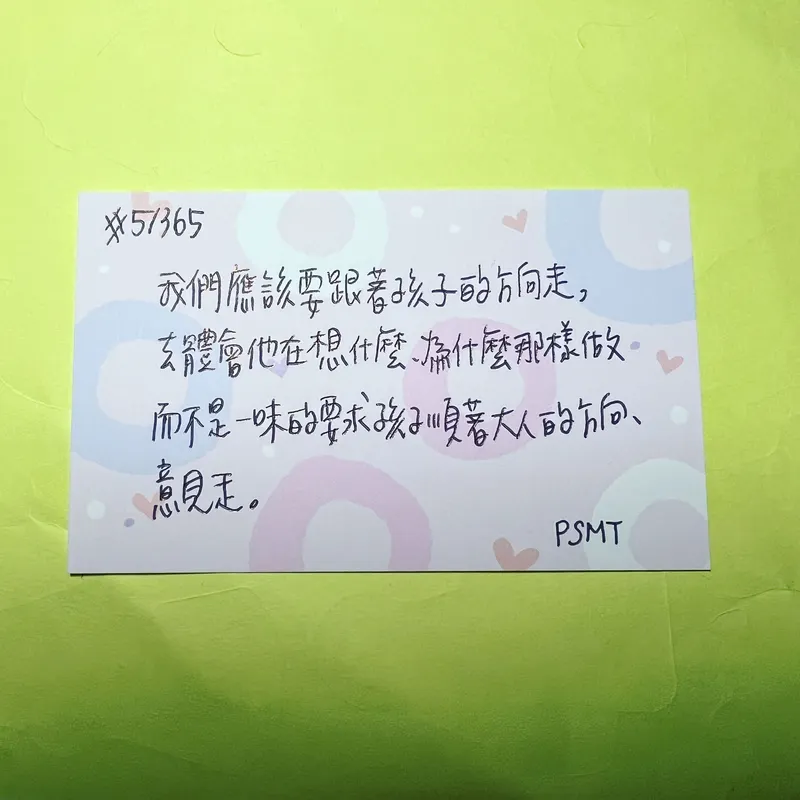 #51365
我們應該要跟著孩子的方向走，
去體會他在想什麼、為什麼那樣做
而不是一味的要求孩子順著大人的方向、
意見走。
PSMT